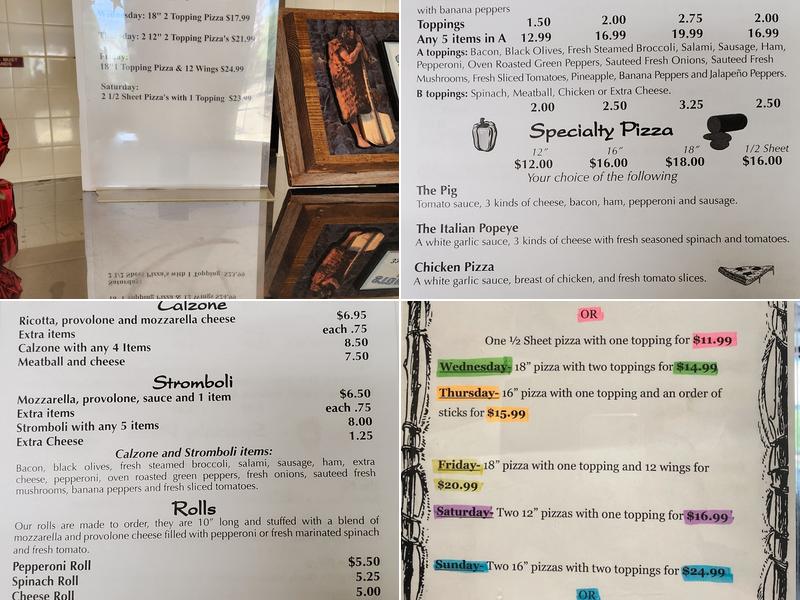 Wednesday: 18" 2 Topping Pizza $17.99
Thursday: 2 12" 2 Topping Pizza's $21.99
Friday:
18" 1 Topping Pizza & 12 Wings $24.99
Saturday:
2 1/2 Sheet Pizza's with 1 Topping $23.99
with banana peppers
Toppings 1.50 2.00 2.75 2.00
Any 5 items in A 12.99 16.99 19.99 16.99
A toppings: Bacon, Black Olives, Fresh Steamed Broccoli, Salami, Sausage, Ham,
Pepperoni, Oven Roasted Green Peppers, Sauteed Fresh Onions, Sauteed Fresh
Mushrooms, Fresh Sliced Tomatoes, Pineapple, Banana Peppers and Jalapeño Peppers.
B toppings: Spinach, Meatball, Chicken or Extra Cheese.
2.00 2.50 3.25 2.50
Specialty Pizza
12" 16" 18" 1/2 Sheet
$12.00 $16.00 $18.00 $16.00
Your choice of the following
The Pig
Tomato sauce, 3 kinds of cheese, bacon, ham, pepperoni and sausage.
The Italian Popeye
A white garlic sauce, 3 kinds of cheese with fresh seasoned spinach and tomatoes.
Chicken Pizza
A white garlic sauce, breast of chicken, and fresh tomato slices.
Calzone
Ricotta, provolone and mozzarella cheese $6.95
Extra items each .75
Calzone with any 4 Items 8.50
Meatball and cheese 7.50
Stromboli
Mozzarella, provolone, sauce and 1 item $6.50
Extra items each .75
Stromboli with any 5 items 8.00
Extra Cheese 1.25
Calzone and Stromboli items:
Bacon, black olives, fresh steamed broccoli, salami, sausage, ham, extra
cheese, pepperoni, oven roasted green peppers, fresh onions, sauteed fresh
mushrooms, banana peppers and fresh sliced tomatoes.
Rolls
Our rolls are made to order, they are 10" long and stuffed with a blend of
mozzarella and provolone cheese filled with pepperoni or fresh marinated spinach
and fresh tomato.
Pepperoni Roll $5.50
Spinach Roll 5.25
Cheese Roll 5.00
OR
One ½ Sheet pizza with one topping for $11.99
Wednesday- 18" pizza with two toppings for $14.99
Thursday- 16" pizza with one topping and an order of
sticks for $15.99
Friday- 18" pizza with one topping and 12 wings for
$20.99
Saturday- Two 12" pizzas with one topping for $16.99
Sunday- Two 16" pizzas with two toppings for $24.99
OR